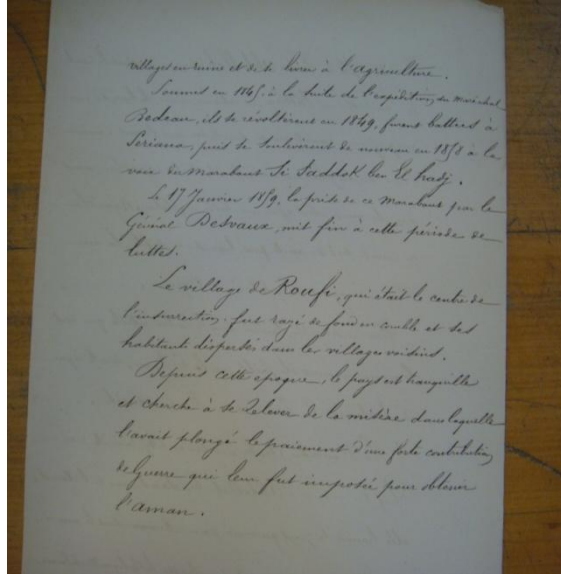 villages en ruine et de se livrer à l'agriculture.
Soumis en 1845, à la suite de l'expédition, du Maréchal
Bedeau, ils se révoltèrent en 1849, furent battus à
Seriana, puis se soulevèrent de nouveau en 1858 à la
voix du Marabout Si Saddok ben El hadj.
Le 17 Janvier 1859, la prise de ce Marabout par le
Général Desvaux, mit fin à cette période de
luttes.
Le village de Roufi, qui était le centre de
l'insurrection, fut rasé de fond en comble et ses
habitants dispersés dans les villages voisins.
Depuis cette époque, le pays est tranquille
et cherche à se relever de la misère dans laquelle
l'avait plongé le paiement d'une forte contribution
de Guerre qui leur fut imposée pour obtenir
l'aman.